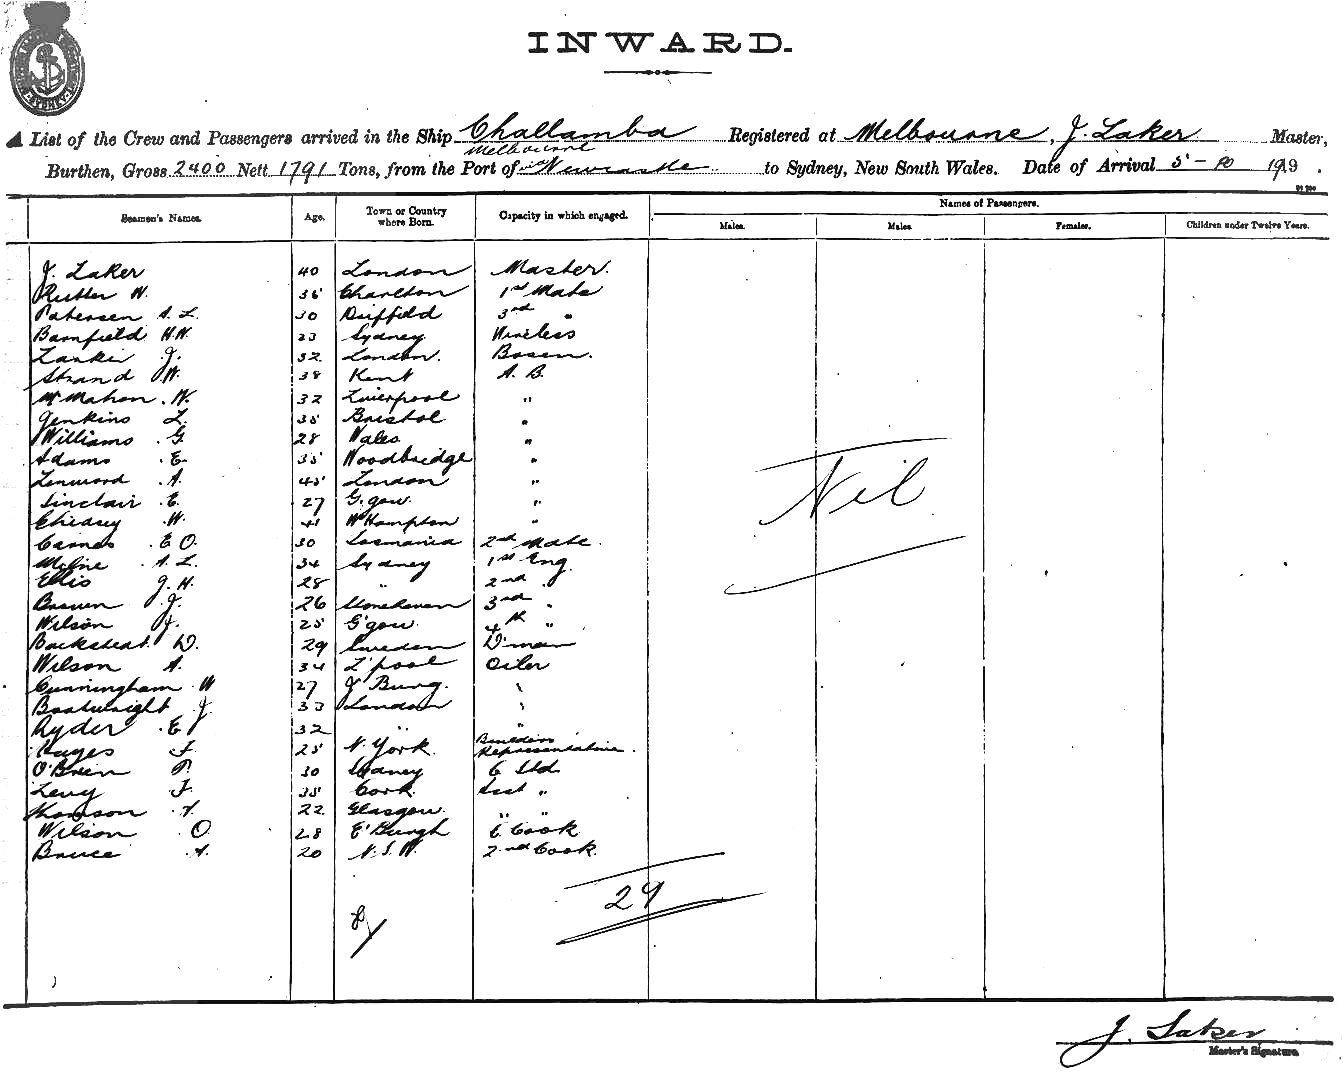 INWARD.
SYDNEY
A List of the Crew and Passengers arrived in the Ship Challamba Registered at Melbourne, J. Laker Master,
Melbourne
Burthen, Gross 2400 Nett 1791 Tons, from the Port of Newcastle to Sydney, New South Wales. Date of Arrival 5-10 1919.
Names of Passengers.
Seamen's Names. Age. Town or Country where Born. Capacity in which engaged. Males. Males. Females. Children under Twelve Years.
J. Laker 40 London Master.
Rutter W. 36 Charlton 1st Mate
Petersen A. L. 30 Duffield 3rd "
Bamfield H.W. 23 Sydney Wireless
J. 32 London. Bosen.
Strand W. 38 Kent A. B.
McMahon. W. 32 Liverpool "
Jenkins L. 35 Bristol "
Williams G 28 Wales "
Adams E. 35 Woodbridge "
Linwood A. 45 London "
Sinclair E. 27 G.gow. "
Chidsey W. 41 W'Hampton "
Carnes E O. 30 Tasmania 2nd Mate.
Milne A. L. 34 Sydney 1st Eng.
Ellis J. H. 28 " 2nd "
Brown J. 26 Stonehaven 3rd "
Wilson J. 25 G'gow. 4th "
D. 29 Sweden D'man
Wilson A. 34 L'pool Oiler
Cunningham W 27 J'Burg. "
Boatwright J. 33 London "
Ryder E 32 " "
Nil
Hayes F. 25 N. York. Representative.
O'Brien P. 30 Sydney C Std
Levy F. 35 Cork. Asst "
Thomson A. 22 Glasgow. " "
Wilson O. 28 E'Burgh C Cook
Bruce A. 20 N.S.W. 2nd Cook.
29
J. Laker
Master's Signature